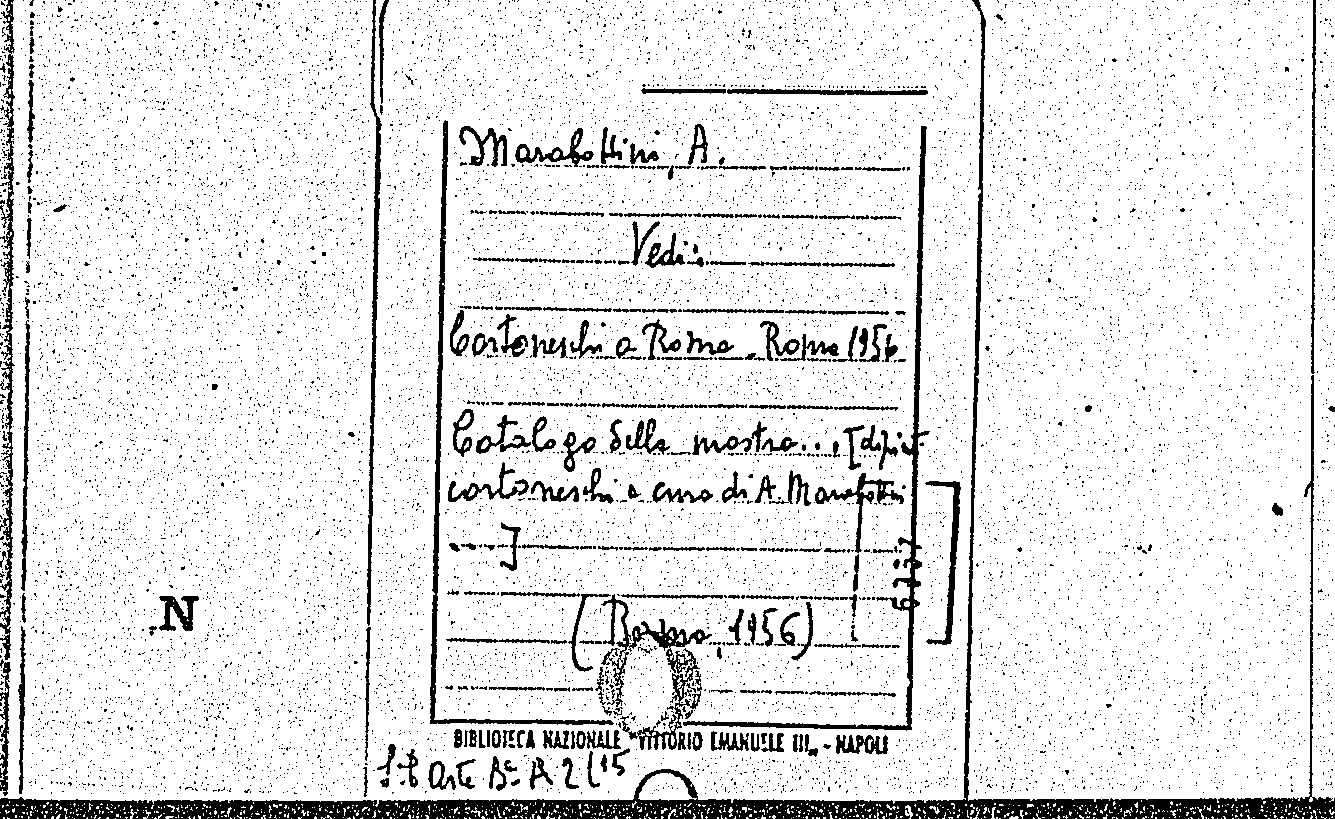 Marabottini, A.
Vedi:
Cortoneschi a Roma. Roma 1956
Catalogo della mostra..., [dipinti
cortoneschi a cura di A. Marabottini
....]
(Roma, 1956)
6737
N
BIBLIOTECA NAZIONALE VITTORIO EMANUELE III - NAPOLI
arte A 2 (15